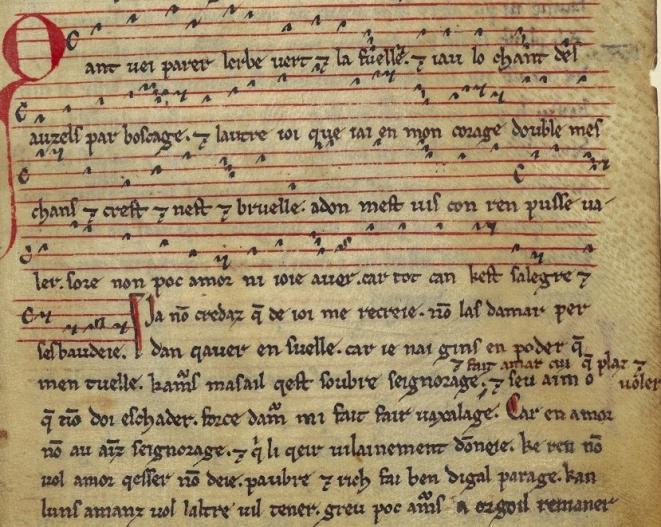 Qant vei parer lerbe vert ⁊ la fuelle. ⁊ iau lo chant dels
auzels par boscage. ⁊ lautre ioi que iai en mon corage double mes
chans ⁊ crest ⁊ nest ⁊ bruelle. adon mest vis con ren pusse va
ler. sore non poc amor ni ioie auer. car tot can kest salegre ⁊
sesbaudeie.
Ja nō credaz q̄ de ioi me recreie. nō las damar per
dan qauer en suelle. car ie nai gins en poder q̄
⁊ fait amar cui q̄ plaz ⁊
men tuelle. kam̄s masail qest soubre seignorage. ⁊ seu aim o uoler
q̄ nō doi eschader. force dam̄ mi fait fair uaxalage. Car en amor
nō au seignorage. ⁊ q̇ li qeir uilainement dōneie. ke ren nō
vol amor qesser nō deie. paubre ⁊ rich fai ben digal parage. kan
luns amanz vol laltre vil tener. greu poc am̄s a orgoil remaner